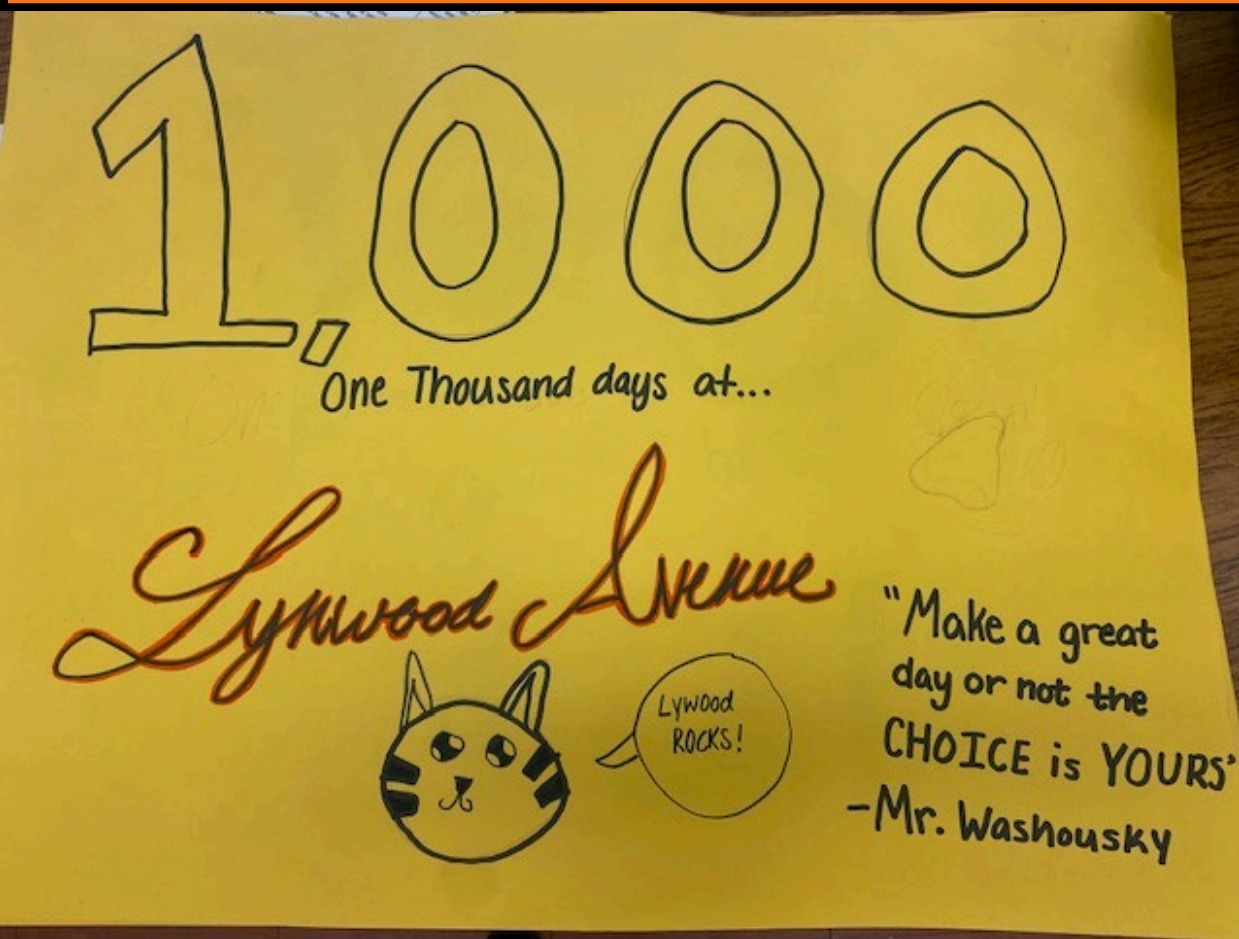 1,000
One Thousand days at...
Lynwood Avenue
Lywood
ROCKS!
"Make a great
day or not the
CHOICE is YOURS"
-Mr. Washousky